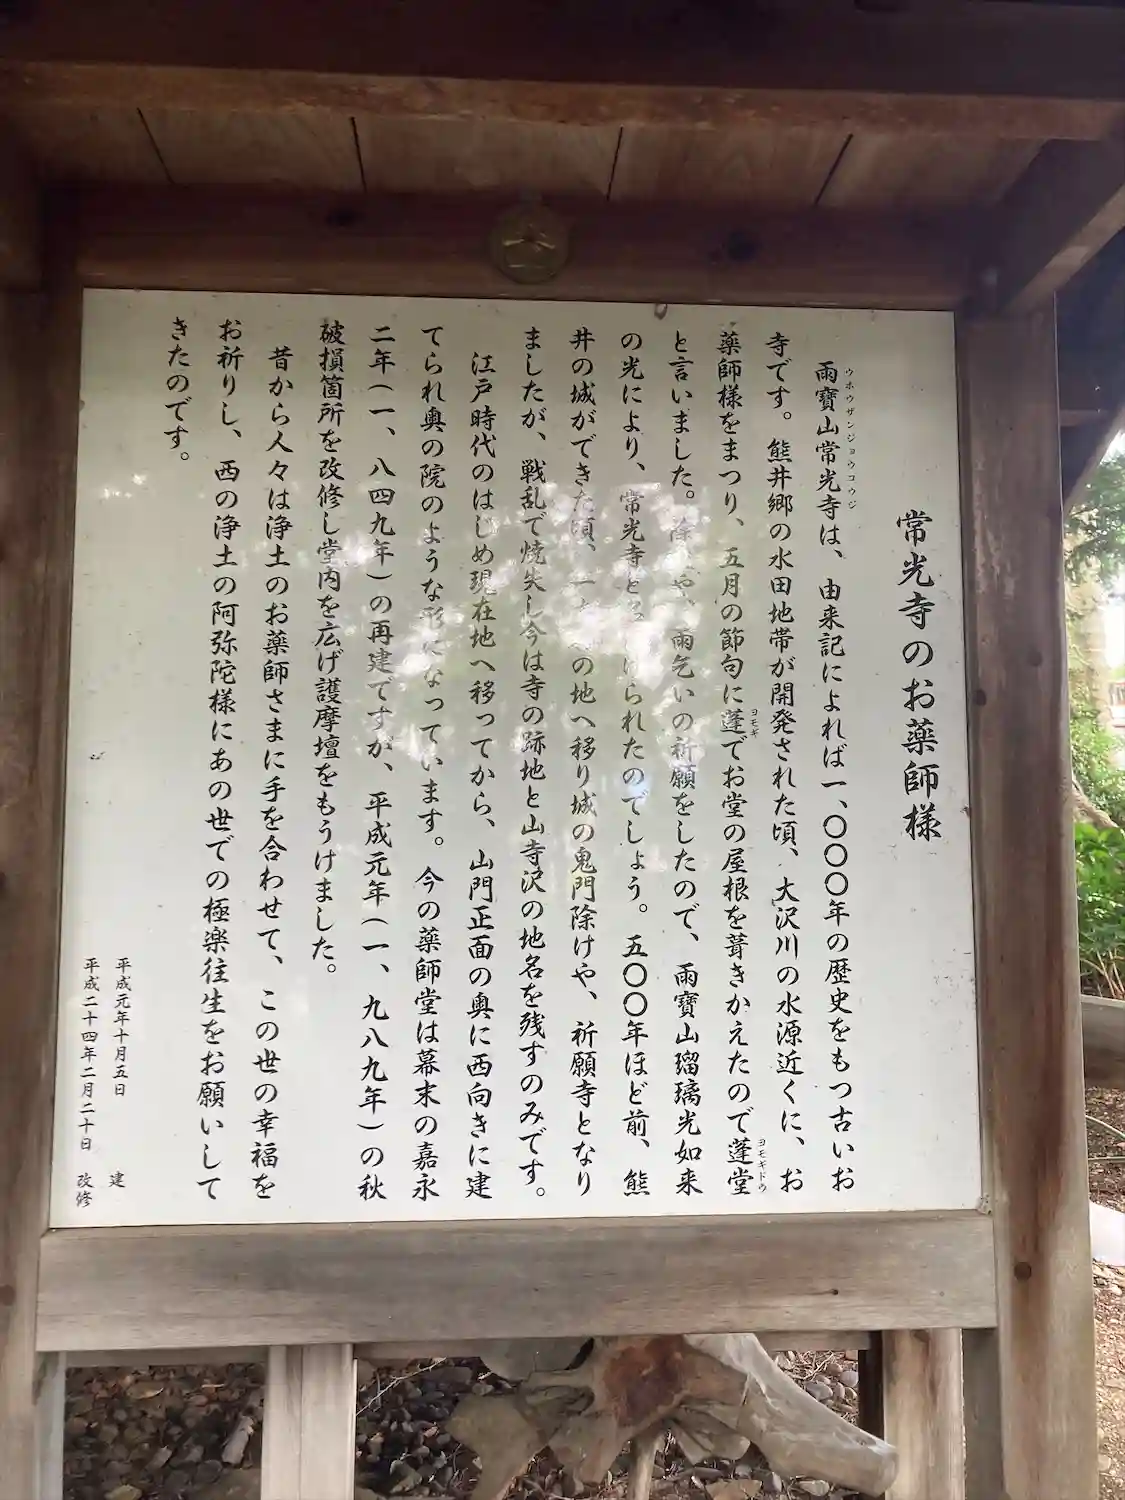 常光寺のお薬師様
ウホウザンジョウコウジ
雨寶山常光寺は、由来記によれば一、〇〇〇年の歴史をもつ古いお
寺です。熊井郷の水田地帯が開発された頃、大沢川の水源近くに、お
薬師様をまつり、五月の節句に蓬でお堂の屋根を葺きかえたので蓬堂
ヨモギ
ヨモギドウ
と言いました。や、雨乞いの祈願をしたので、雨寶山瑠璃光如来
の光により、常光寺とられたのでしょう。五〇〇年ほど前、熊
井の城ができた頃、の地へ移り城の鬼門除けや、祈願寺となり
ましたが、戦乱で焼失し今は寺の跡地と山寺沢の地名を残すのみです。
江戸時代のはじめ現在地へ移ってから、山門正面の奥に西向きに建
てられ奥の院のような形になっています。今の薬師堂は幕末の嘉永
二年(一、八四九年)の再建ですが、平成元年(一、九八九年)の秋
破損箇所を改修し堂内を広げ護摩壇をもうけました。
昔から人々は浄土のお薬師さまに手を合わせて、この世の幸福を
お祈りし、西の浄土の阿弥陀様にあの世での極楽往生をお願いして
きたのです。
平成元年十月五日 建
平成二十四年二月二十日 改修